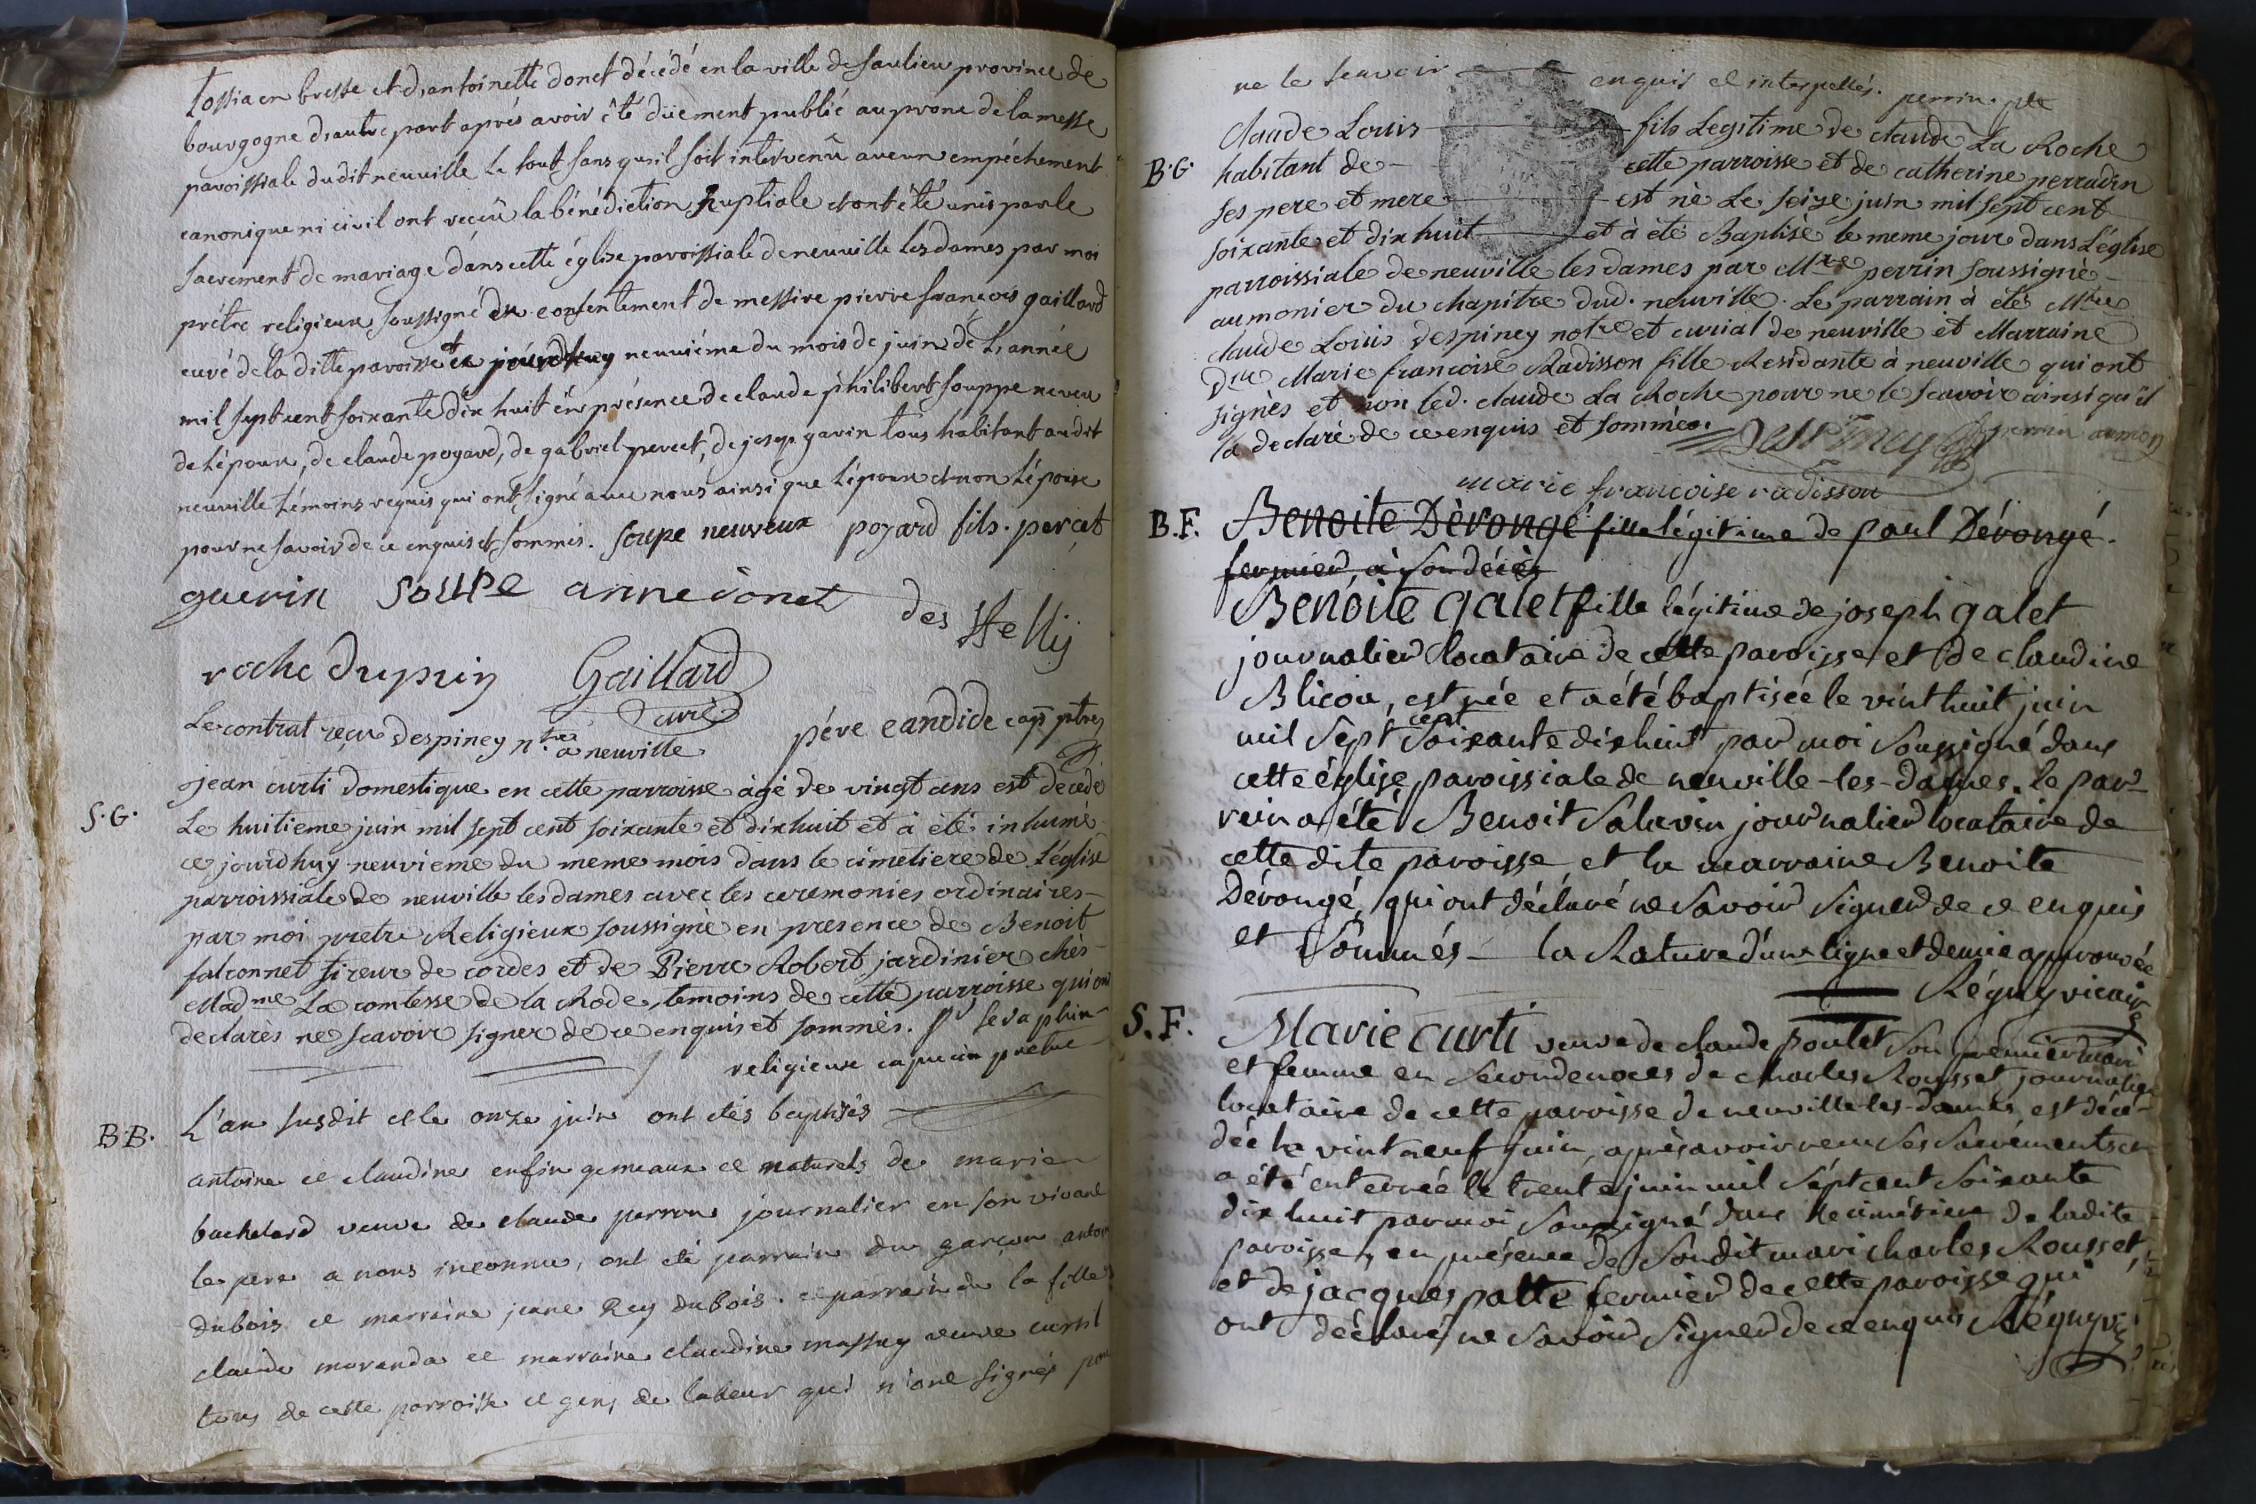 tossia en bresse et d'antoinette donet décédé en la ville de saulieu province de
bourgogne d'autre part aprés avoir êté düement publié au prone de la messe
paroissiale dudit neuville le tout sans qu'il soit intervenû aucun empéchement
canonique ni civil ont reçeû la bénédiction nuptiale et ont été unis par le
sacrement de mariage dans cette église paroissiale de neuville les dames par moi
prétre religieux soussigné du consentement de messire pierre françois gaillard
curé de la ditte paroisse ce jourdhuy neuviéme du mois de juin de L'année
mil sept cent soixante dix huit en présence de claude philibert souppe neveu
de L'époux, de claude poyard, de gabriel percet, de joseph gavin tous habitant audit
neuville témoins requis qui ont signé avec nous ainsi que L'époux et non L'épouse
pour ne savoir de ce enquis et sommés. soupe neuveux poyard fils. percet
guerin soupe anne donet des
roche Dupuis Gaillard
curé
Le contrat reçu Despiney n.re a neuville pére candide cap ptre
S.G. jean curti domestique en cette parroisse âgé de vingt ans est decedé
Le huitieme juin mil sept cent soixante et dixhuit et à été inhumé
ce jourdhuy neuvieme du meme mois dans le cimetiere de L'église
parroissiale de neuville les dames avec les ceremonies ordinaires
par moi pretre Religieux soussigné en presence de Benoit
falconnet tireur de cordes et de Pierre Robert jardinier chès
Madme La comtesse de la Rode, temoins de cette parroisse qui ont
declarès ne scavoir signer de ce enquis et sommés. pr seraphin
religieux capucin pretre
B.B. L'an susdit et le onze juin ont étés baptisés
antoine et claudine enfin gemeaux et naturels de marie
bachelard veuve de claude perron journalier en son vivant
le pere a nous inconnu, ont été parrain du garçon antoine
dubois et marraine jeane Rey dubois. et parrain de la fille
claude moranda et marraine claudine massuy veuve curtil
tous de cette parroisse et gens de labeur qui n'ont signés pour
ne le scavoir enquis et interpellés. perrin. ptre
B.G. Claude Louis fils Legitime de claude La Roche
habitant de cette parroisse et de catherine perradin
ses pere et mere est né Le seize juin mil sept cent
soixante et dix huit et à été Baptisé le meme jour dans L'église
parroissiale de neuville les dames par Mre perrin soussigné
aumonier du chapitre dud. neuville. Le parrain à été Mtre
claude Louis Despiney notre et curial de neuville et Marraine
Dlle Marie francoise Radisson fille Residante à neuville qui ont
signés et non led. claude La Roche pour ne le scavoir ainsi qu'il
la declaré de ce enquis et sommés. Despiney perrin aumon
marie francoise radisson
B.F. Benoite Dérongé fille légitime de paul Dérongé.
fermier, à son décès
Benoite galet fille légitime de joseph galet
journalier locataire de cette paroisse et de claudine
Blicou, est née et a été baptisée le vint huit juin
mil sept cent soixante dix huit par moi soussigné dans
cette église paroissiale de neuville-les-dames. le par
rain a été Benoit Salavin journalier locataire de
cette dite paroisse et la marraine Benoite
Dérongé, qui ont déclaré ne savoir signer de ce enquis
et sommés - la Rature d'une ligne et demie approuvée
Réguy vicaire
S.F. Marie curti veuve de claude poulet son premier mari
et femme en secondenoces de charles Rousset journalier
locataire de cette paroisse de neuville-les-dames, est décé-
dée le vint neuf juin, après avoir reçu ses sacréments et
a été enterrée le trente juin mil sept cent soixante
dix huit par moi soussigné dans le cimétiere de ladite
paroisse, en présence de sondit mari charles Rousset,
et de jacques patte fermier de cette paroisse qui
ont déclaré ne savoir signer de ce enquis Réguy vic